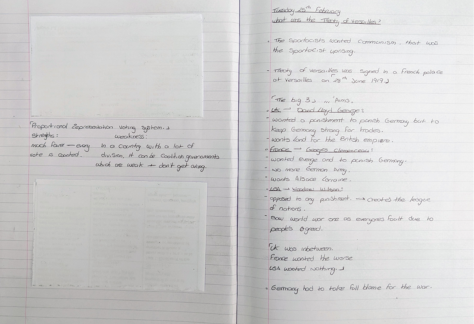 Proportional Representation Voting System.
Strengths: weakness:
much fairer - every in a country with a lot of
vote is counted. division it can be coalition governments
what are weak + don't get along.
Tuesday 25th February
What was the Treaty of Versailles?
- The Spartacists wanted communism. that was
the Spartacist uprising.
- Treaty of Versailles was signed in a French palace
at Versailles on 28th June 1919.
"The big 3's ... "Aims.
UK → David Lloyd George:
- wanted a punishment to punish Germany but to
keep Germany strong for trades.
- wants land for the British empire.
France → Georges Clemenceau:
- wanted revenge and to punish Germany.
- no more German army.
- wants Alsace Lorraine.
USA → Woodrow Wilson:
- opposed to any punishment. → created the league
of nations.
- world war one no everyones fault due to
people
UK was inbetween
France wanted the worse
USA wanted nothing.
- Germany had to take full blame for the war.